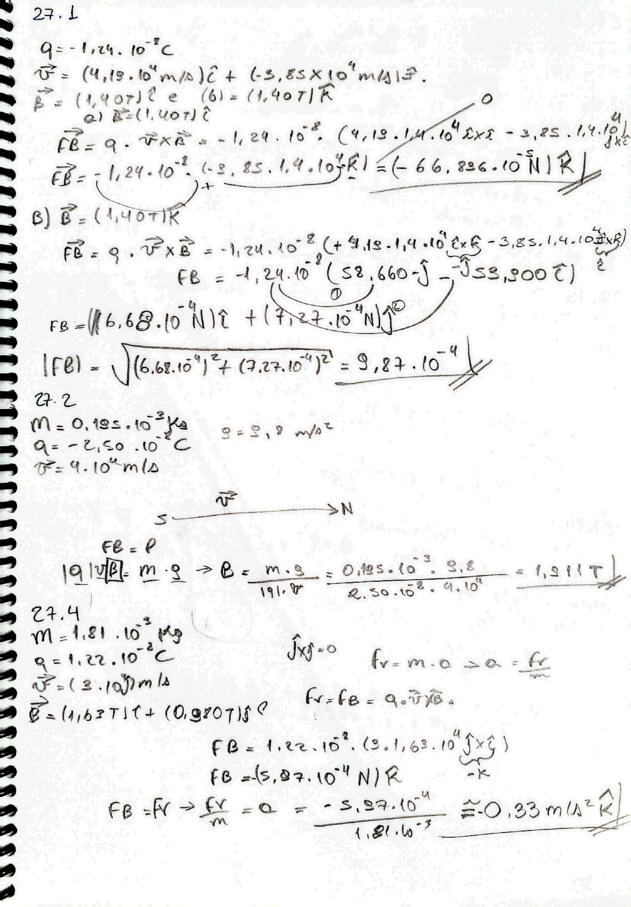 27.1
q = -1,24. 10⁻⁸C
v⃗ = (4,19.10⁴ m/s)î + (-3,85×10⁴ m/s)ĵ.
B⃗ = (1,40T)î e (b) = (1,40T)k̂
a) B⃗=(1,40T)î
F⃗B = q . v⃗×B⃗ = -1,24. 10⁻⁸. (4,19.1,4.10⁴ î×î - 3,85.1,4.10⁴ ĵ×î
0
F⃗B = -1,24.10⁻⁸. (-3,85.1,4.10⁴ -k̂) = (-66,836.10⁻⁵N)k̂
+
B) B⃗ = (1,40T)k̂
F⃗B = q . v⃗×B⃗ = -1,24.10⁻⁸ (+4,19.1,4.10⁴ î×k̂ - 3,85.1,4.10⁴ ĵ×k̂)
-ĵ î
FB = -1,24.10⁻⁸ (58,660-ĵ - 53,900 î)
① ②
FB = (6,68.10⁻⁴N)î + (7,27.10⁻⁴N)ĵ
|FB| = √(6,68.10⁻⁴)² + (7,27.10⁻⁴)² = 9,87.10⁻⁴
27.2
m = 0,195.10⁻³ Kg
g = 9,8 m/s²
q = -2,50 .10⁻⁸ C
v⃗ = 4.10⁴ m/s
v⃗
S → N
FB = P
|q|vB = m.g → B = m.g / |q|.v = 0,195.10⁻³. 9,8 / 2,50.10⁻⁸. 4.10⁴ = 1,911T
27.4
m = 1,81 .10⁻³ Kg
q = 1,22.10⁻⁸C
ĵ×ĵ=0
Fr = m.a → a = Fr/m
v⃗ = (3.10⁴ĵ) m/s
Fr = FB = q.v⃗×B⃗.
B⃗ = (1,63T)î + (0,980T)ĵ
FB = 1,22.10⁻⁸. (3.1,63.10⁴ ĵ×î)
-k
FB = (5,97.10⁻⁴ N)k̂
FB = Fr → Fr/m = a = -5,97.10⁻⁴ / 1,81.10⁻³ ≅ -0,33 m/s² k̂